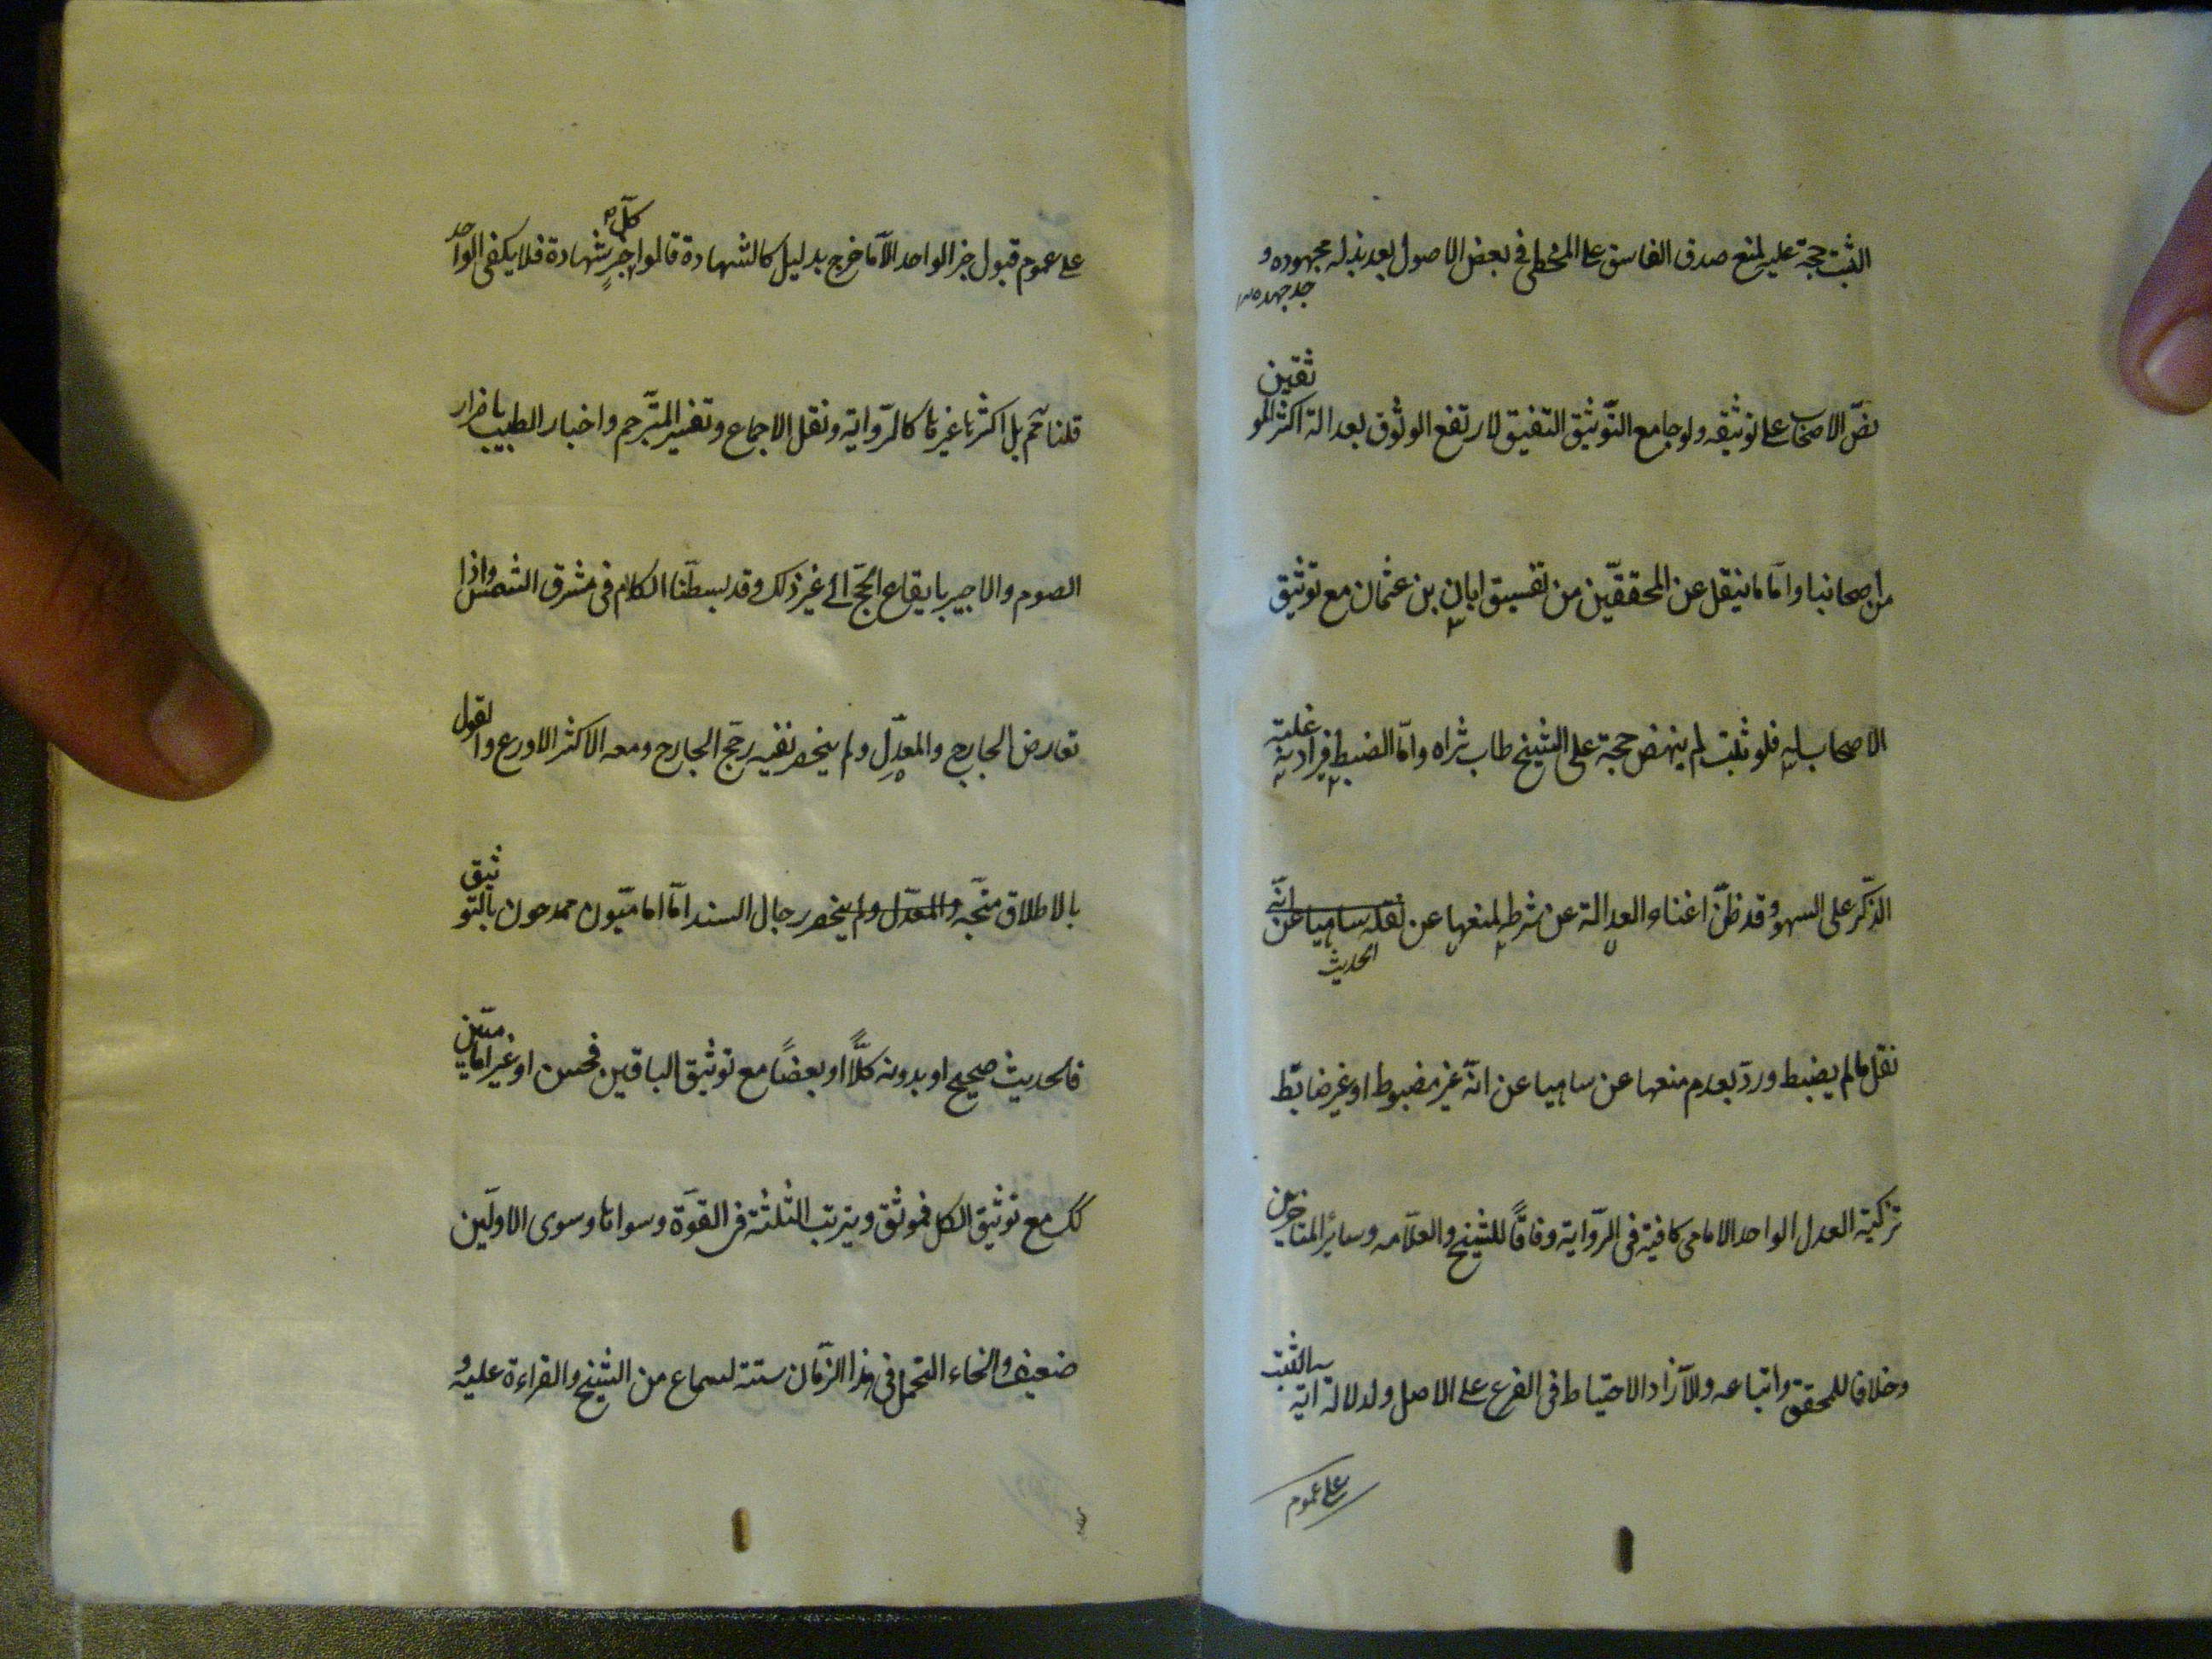 التثبت حجة عليه لمنع صدق الفاسق على المخطى فى بعض الاصول بعد بذله مجهوده و
جد جهده ١٢
نصّ الاصحاب على توثيقه ولو جامع التّوثيق التفيق لارتفع الوثوق بعدالة اكثر الموثقين
من اصحابنا وامّا ما ينقل عن المحققّين من تفسيق ابان بن عثمان مع توثيق
الاصحاب له فلو ثبت لم ينهض حجة على الشيخ طاب ثراه وامّا الضبط فيراد به غلبة
الذّكر على السهو وقد ظنّ اغناء العدالة عن شرطه لمنعها عن نقله ساهيا عن انّه
الحديث
نقل ما لم يضبط وردّ بعدم منعها عن ساهيا عن انّه غير مضبوط او غير ضابط
تزكية العدل الواحد الامامى كافية فى الرّواية وفاقًا للشيخ والعلّامه وسائر المتاخرين
وخلافا للمحقق واتباعه وللآزاد الاحتياط فى الفرع على الاصل ولدلالة اية التثبت
على عموم
على عموم قبول خبر الواحد الّا ما خرج بدليل كالشهادة قالوا كلّ خبرٍ شهادة فلا يكفى الواحد
قلنا ثم بل اكثرها غيرها كالرّواية ونقل الاجماع وتفسير المترّجم واخبار الطبيب باضرار
الصوم والاجير بايقاع الحجّ الى غير ذلك وقد بسطنا الكلام فى مشرق الشمس واذا
تعارض الجارح والمعدّل ولم ينحصر نفيه رجّح الجارح ومعه الاكثر الاورع والقول
بالاطلاق متّجه والمعدّل ولم ينحصر رجال السند امّا اماميّون ممدحون بالتّوثيق
فالحديث صحيح او بدونه كلًّا او بعضًا مع توثيق الباقين فحسن او غير اماميّين
كك مع توثيق الكل فموثق ويترتب الثلثة فى القوّة وسواها وسوى الاولين
ضعيف وانحاء التحمل فى هذا الزّمان ستة لسماع من الشيخ والقراءة عليه و